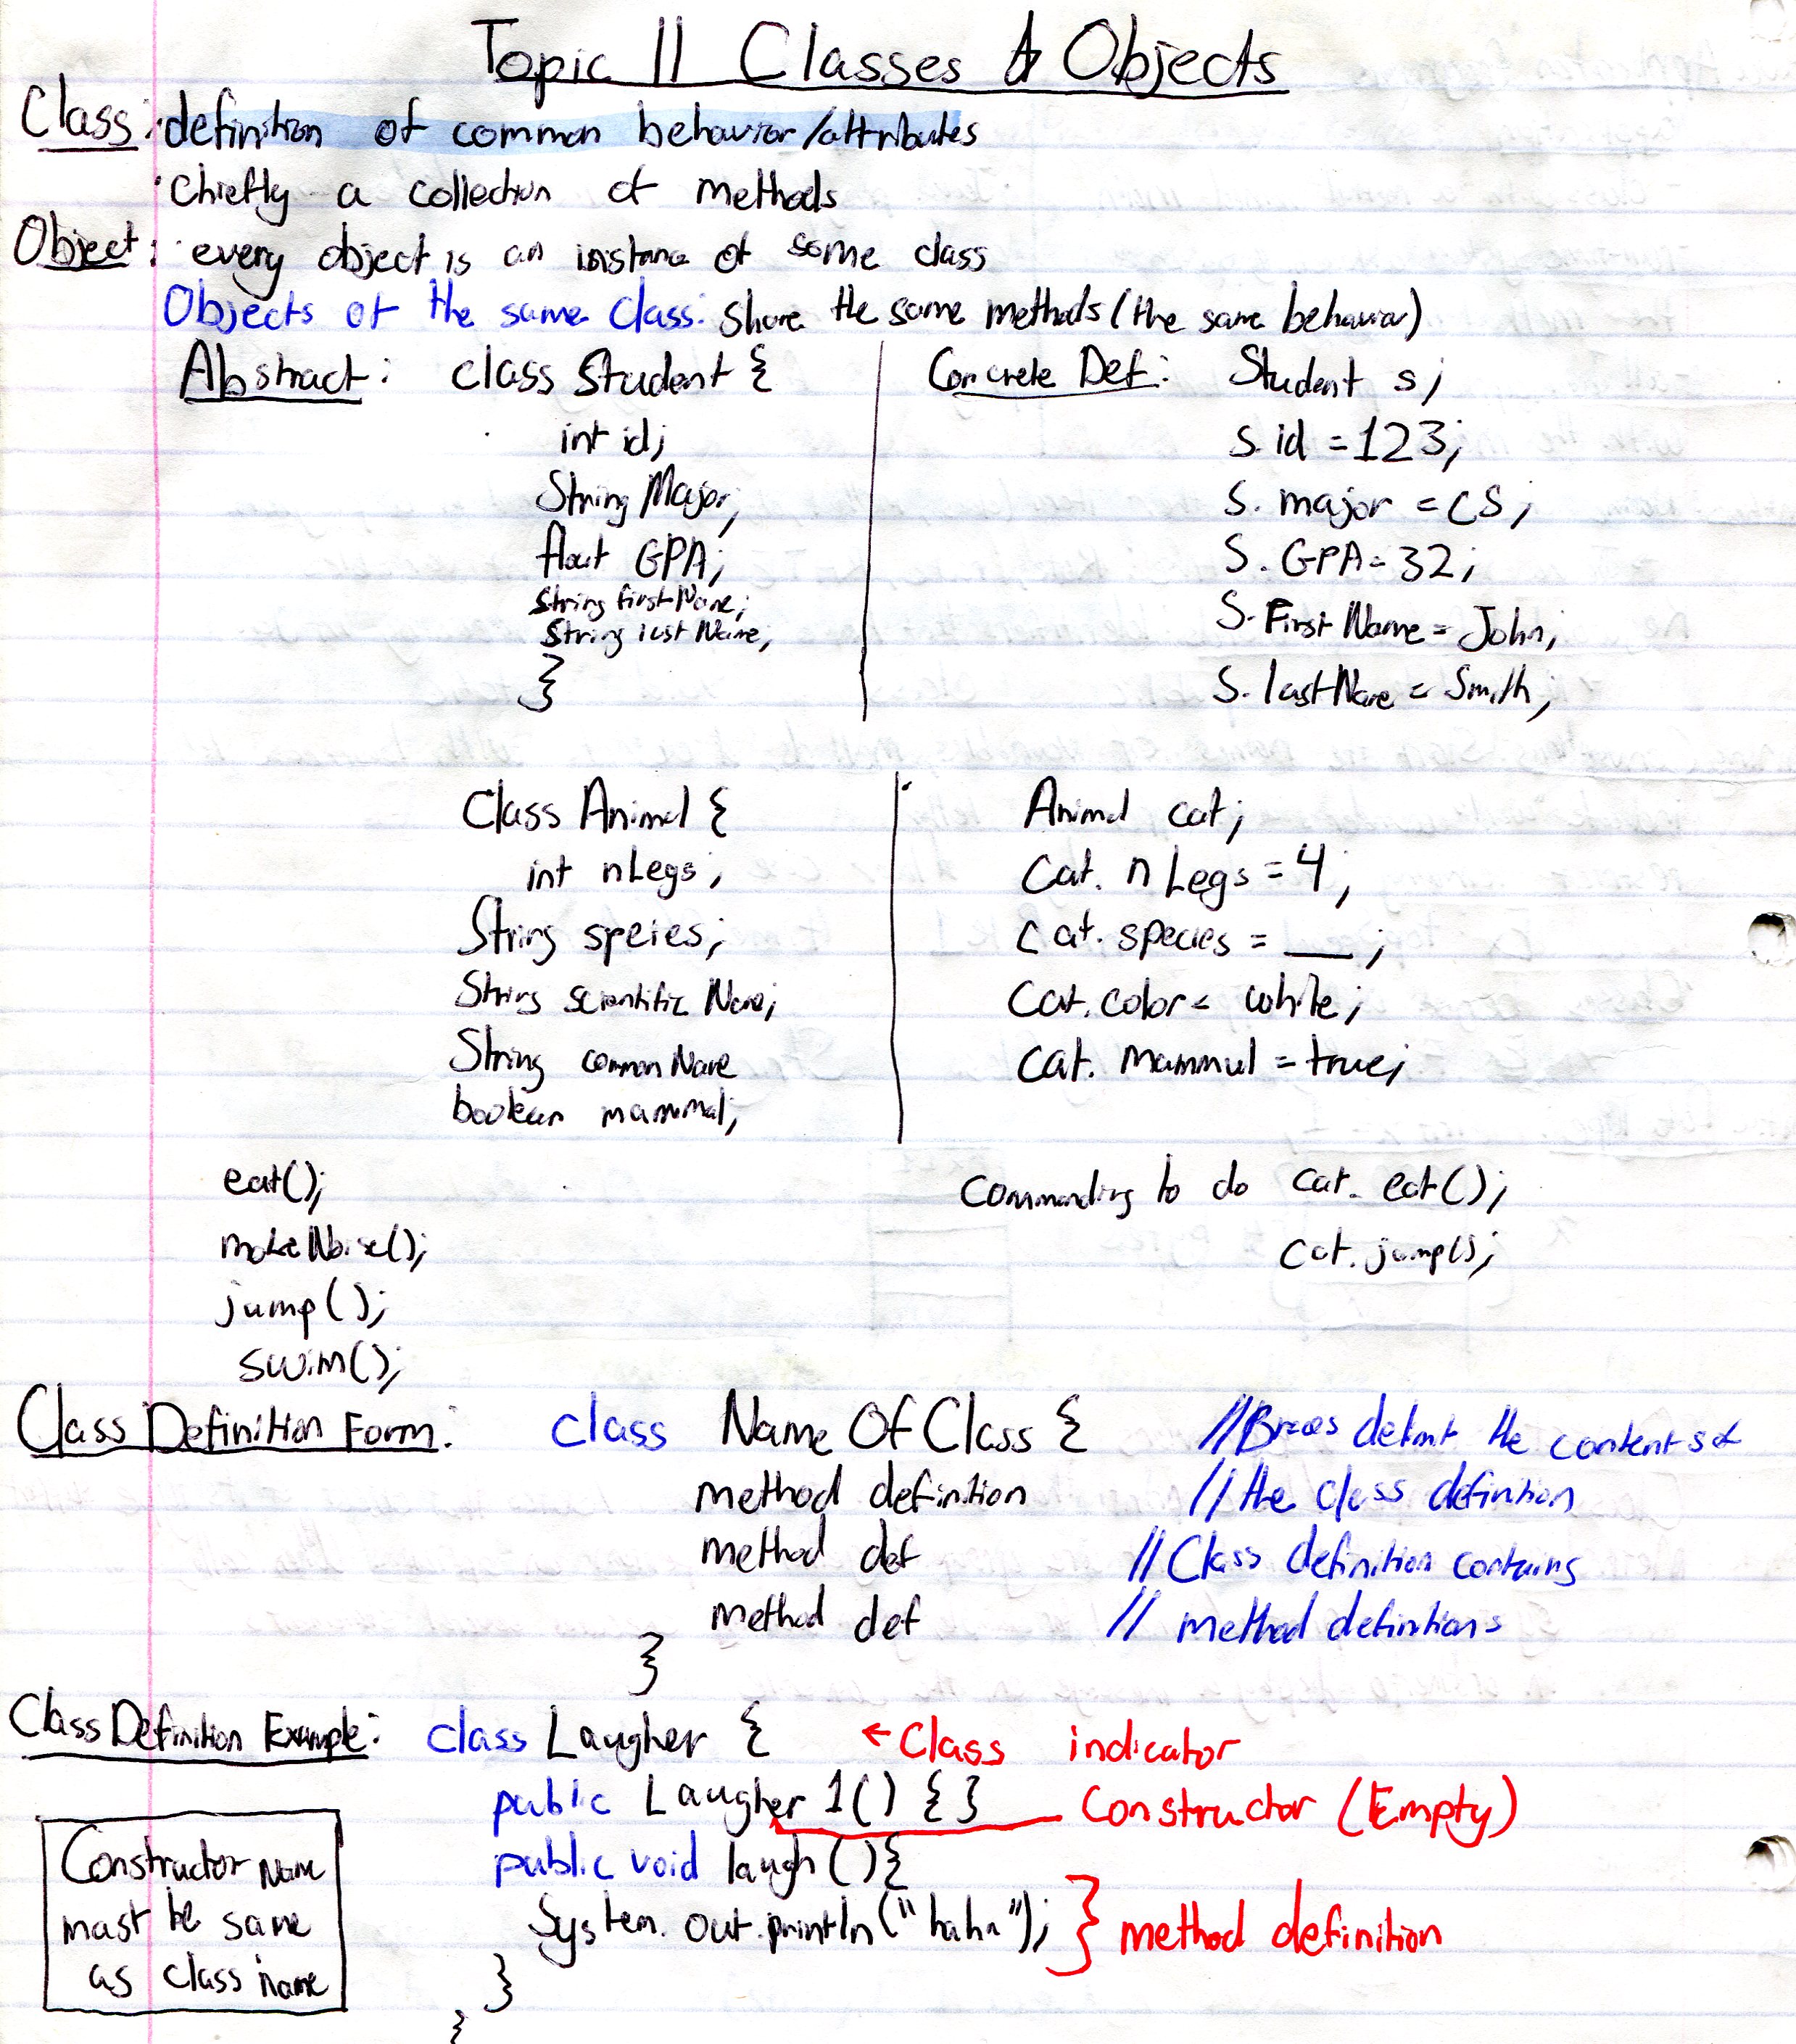 Topic 11 Classes & Objects
Class: definition of common behavior/attributes
· Chiefly a collection of methods
Object: · every object is an instance of some class
Objects of the same class: share the same methods (the same behavior)
Abstract: class Student {
int id;
String Major;
float GPA;
String firstName;
String lastName;
}
Concrete Def: Student s;
s.id = 123;
S. major = CS;
S. GPA = 32;
S. FirstName = John;
S. lastName = Smith;
Class Animal {
int nLegs;
String speies;
String scientific Name;
String commonName
boolean mammal;
Animal cat;
Cat. nLegs = 4;
Cat. species = ___ ;
Cat. color = white;
Cat. mammul = true;
eat();
makeNoise();
jump();
swim();
Commanding to do cat. eat();
cat. jump();
Class Definition Form: class Name Of Class { //Braces delimit the contents of
method definition // the class definition
method def // Class definition contains
method def // method definitions
}
Class Definition Example: class Laugher { ← Class indicator
public Laugher 1() { } Constructor (Empty)
public void laugh () {
System. out. println ("haha"); } method definition
}
}
Constructor Name
must be same
as class name